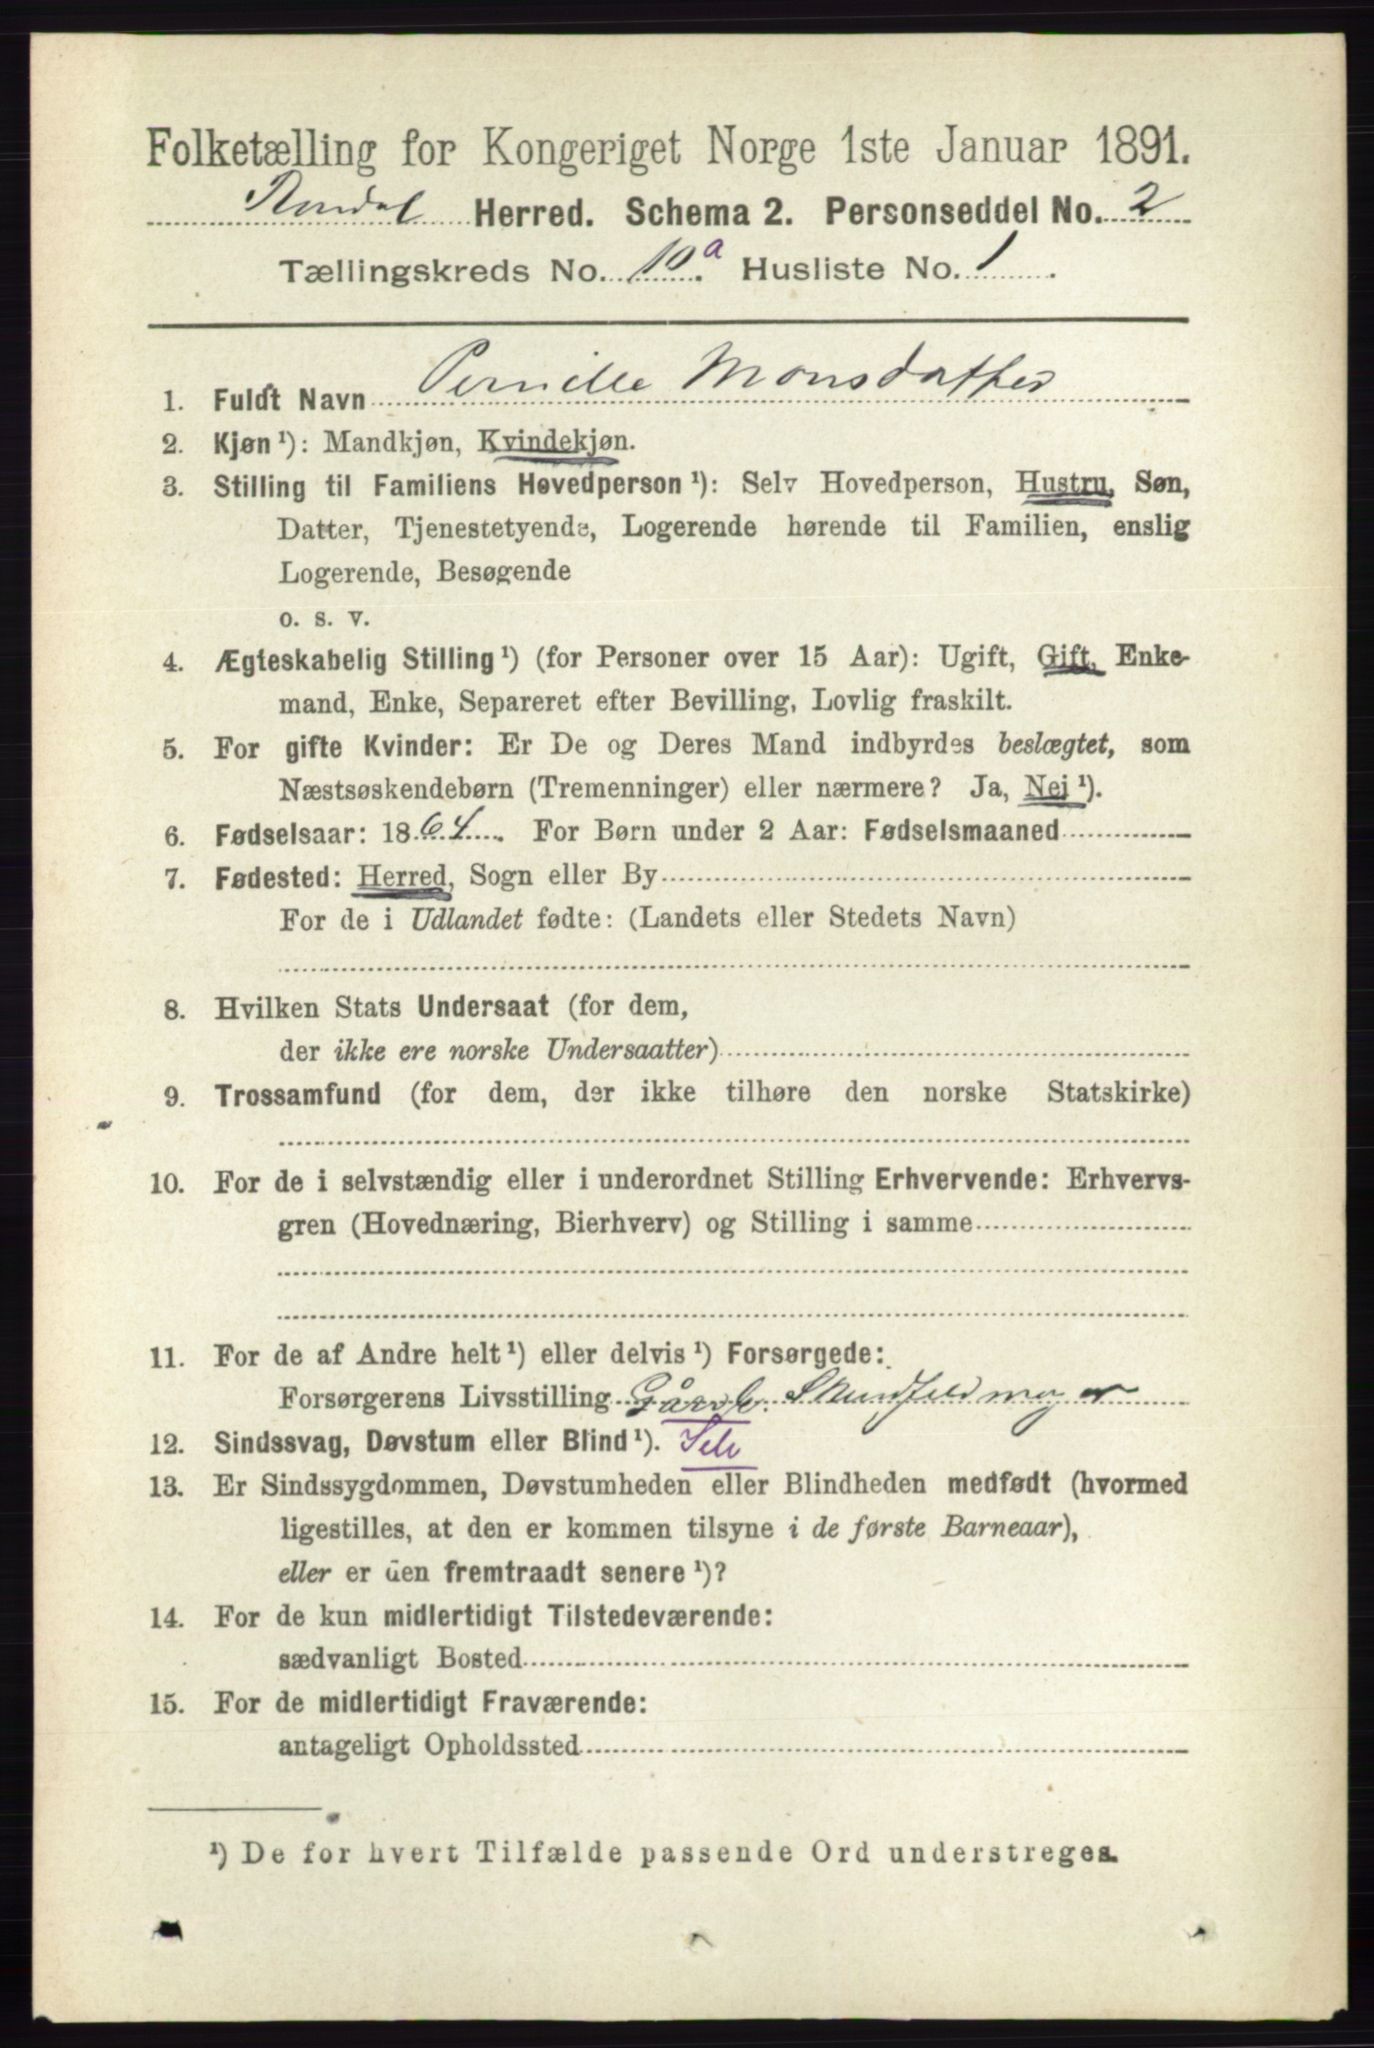 Folketælling for Kongeriget Norge 1ste Januar 1891.
Herred. Schema 2. Personseddel No. 2
Tællingskreds No. 10.a Husliste No. 1.
1. Fuldt Navn Pernille Monsdatter
2. Kjøn ¹): Mandkjøn, Kvindekjøn.
3. Stilling til Familiens Hovedperson ¹): Selv Hovedperson, Hustru, Søn,
Datter, Tjenestetyende, Logerende hørende til Familien, enslig
Logerende, Besøgende
o. s. v.
4. Ægteskabelig Stilling ¹) (for Personer over 15 Aar): Ugift, Gift, Enke-
mand, Enke, Separeret efter Bevilling, Lovlig fraskilt.
5. For gifte Kvinder: Er De og Deres Mand indbyrdes beslægtet, som
Næstsøskendebørn (Tremenninger) eller nærmere? Ja, Nej ¹).
6. Fødselsaar: 1864. For Børn under 2 Aar: Fødselsmaaned
7. Fødested: Herred, Sogn eller By
For de i Udlandet fødte: (Landets eller Stedets Navn)
8. Hvilken Stats Undersaat (for dem,
der ikke ere norske Undersaatter)
9. Trossamfund (for dem, der ikke tilhøre den norske Statskirke)
10. For de i selvstændig eller i underordnet Stilling Erhvervende: Erhvervs-
gren (Hovednæring, Bierhverv) og Stilling i samme
11. For de af Andre helt ¹) eller delvis ¹) Forsørgede:
Forsørgerens Livsstilling Gårdb.
12. Sindssvag, Døvstum eller Blind ¹). Selv
13. Er Sindssygdommen, Døvstumheden eller Blindheden medfødt (hvormed
ligestilles, at den er kommen tilsyne i de første Barneaar),
eller er den fremtraadt senere ¹)?
14. For de kun midlertidigt Tilstedeværende:
sædvanligt Bosted
15. For de midlertidigt Fraværende:
antageligt Opholdssted
¹) De for hvert Tilfælde passende Ord understreges.